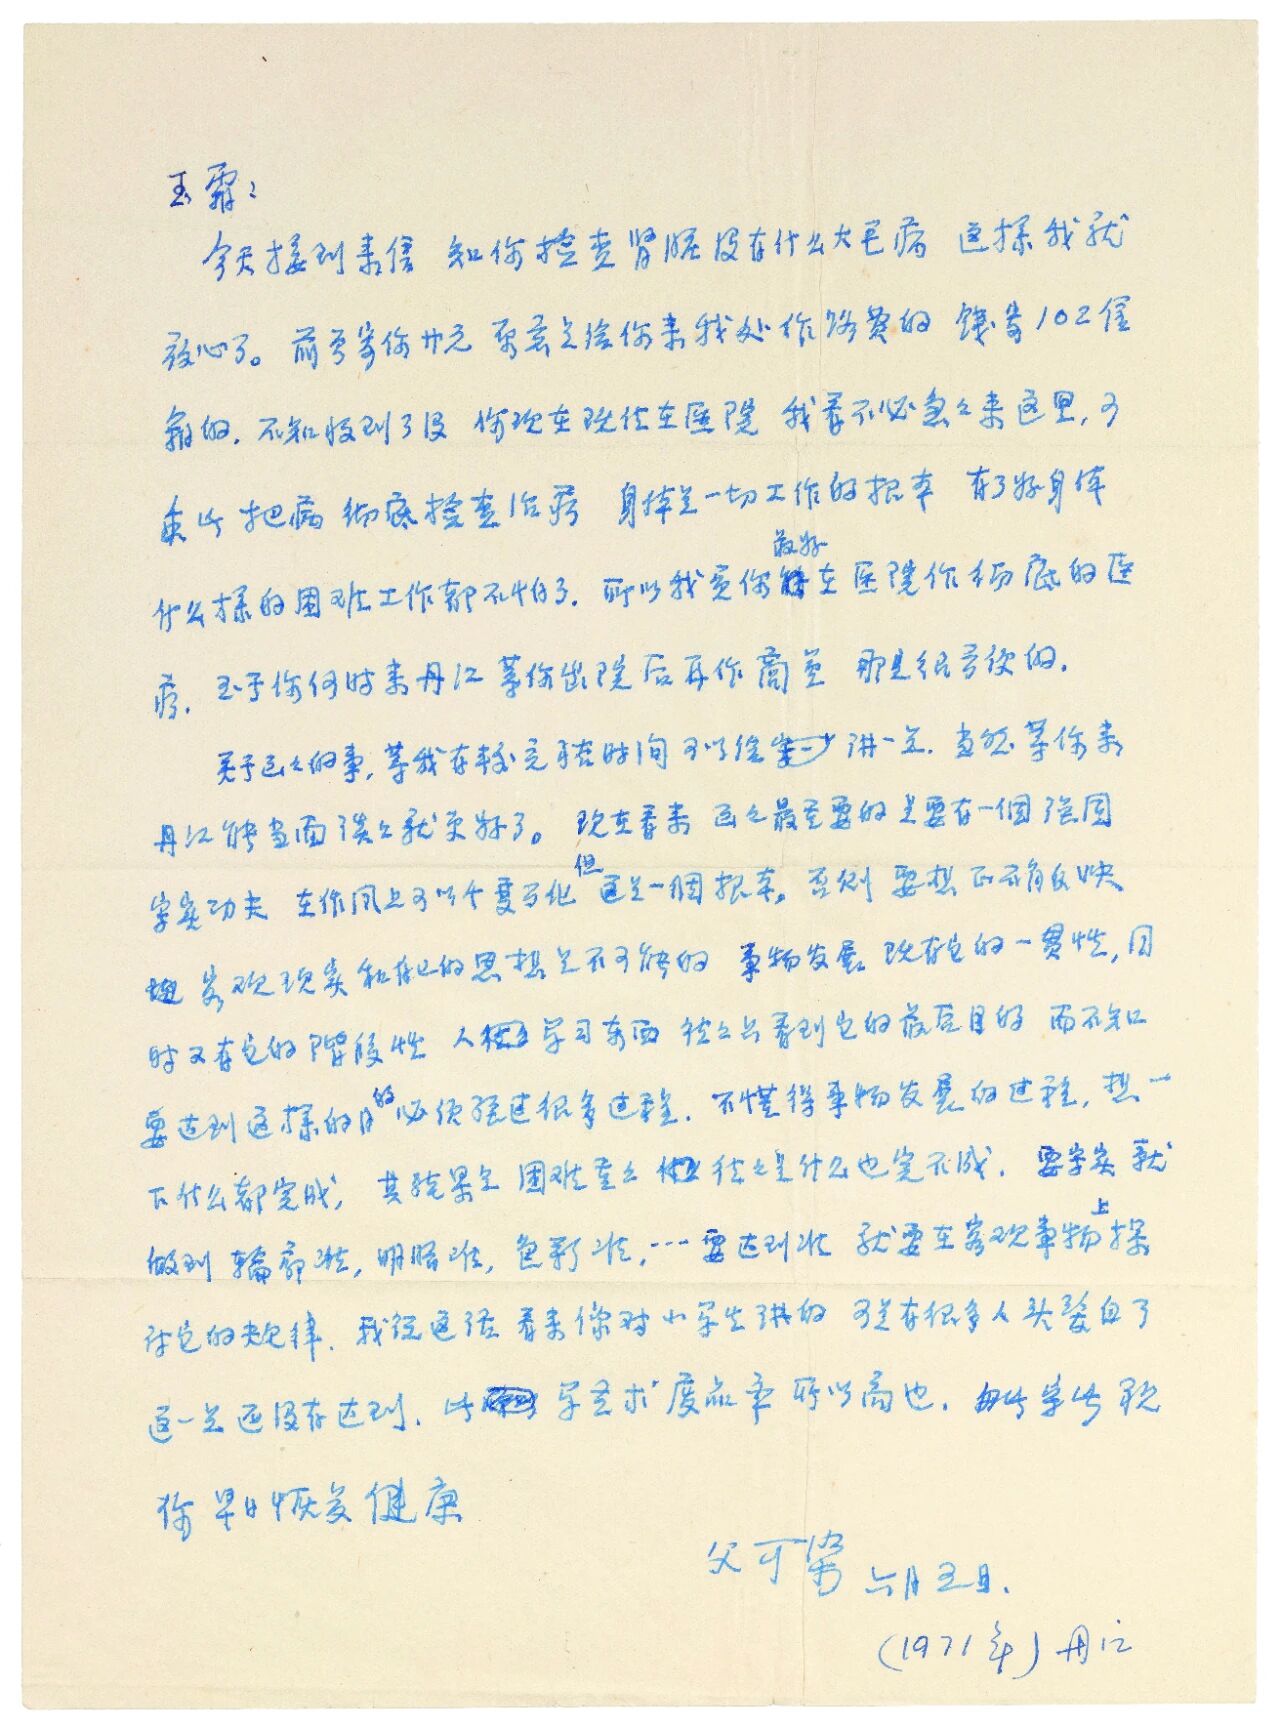 玉霜：
今天接到来信 知你检查肾脏没有什么大毛病 这样我就
放心了。前号寄你廿元 原意是给你来我处作路费的 钱寄102信
箱的．不知收到了没 你现在既住在医院 我看不必急々来这里，可
乘此把病彻底检查治疗 身体是一切工作的根本 有了好身体
什么样的困难工作都不怕了．所以我意你最好在医院作彻底的医
疗．至于你何时来丹江 等你出院后再作商量 那是很方便的．
关于画画的事，等我有较充裕时间可以给 讲一点．当然等你来
丹江能当面谈谈就更好了。现在看来 画画最重要的是要有一個强固
字实功夫 在作风上可以千变万化 但这是一個根本。否则 要想正确反映
地客观现实和自己的思想是不可能的 事物发展 既有它的一贯性，同
时又有它的阶段性 人 学习东西 往々只看到它的最后目的 而不知
要达到这样的目的必须经过很多过程．不懂得事物发展的过程，想一
下什么都完成，其结果是 困难重々 往々是什么也完不成．要写实 就
做到 轮廓准，明暗准，色彩准，…要达到准 就要在客观事物上探
讨它的规律．我说这话 看来像对小学生讲的 可是有很多人头发白了
这一点还没有达到．此 学艺术废品率所以高也．匆此 字此 祝
你早日恢复健康
父可染 六月五日．
(1971年) 丹江